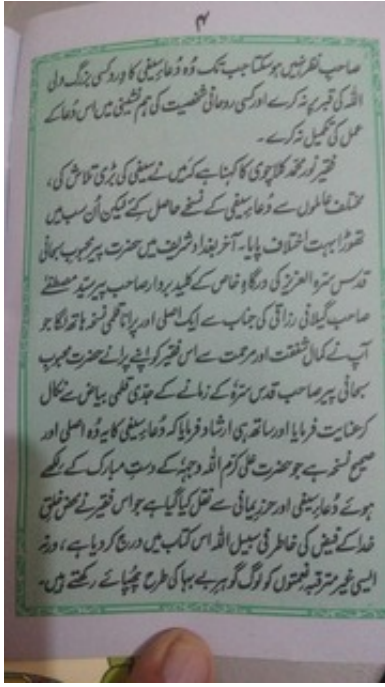 ۴
صاحبِ نظر نہیں ہو سکتا جب تک وُہ دُعاءِ سیفی کا وِرد کسی بزرگ ولی
اللہ کی قبر پر نہ کرے اور کسی روحانی شخصیت کی ہم نشینی میں اس دُعا کے
عمل کی تکمیل نہ کرے ۔
فقیر نُور محمد کلاچوی کا کہنا ہے کہ مَیں نے سیفی کی بڑی تلاش کی،
مختلف عاملوں سے دُعاءِ سیفی کے نسخے حاصل کئے لیکن اُن سب میں
تھوڑا بہت اختلاف پایا۔ آخر بغداد شریف میں حضرت پیر محبوب سبحانی
قدس سرہ العزیز کی درگاہِ خاص کے کلید بردار صاحب پیر سید مصطفےٰ
صاحب گیلانی رزاقی کی جناب سے ایک اصلی اور پرانا قلمی نسخہ ہاتھ لگا جو
آپ نے کمال شفقت اور مرحمت سے اس فقیر کو اپنے پرانے حضرت محبوب
سبحانی پیر صاحب قدس سرّہٗ کے زمانے کے جدّی قلمی بیاض سے نکال
کر عنایت فرمایا اور ساتھ ہی ارشاد فرمایا کہ دُعاءِ سیفی کا یہ وُہ اصلی اور
صحیح نسخہ ہے جو حضرت علی کرم اللہ وجہہٗ کے دستِ مبارک کے لکھے
ہوئے دُعاءِ سیفی اور حرزِ یمانی سے نقل کیا گیا ہے جو اس فقیر نے محض خلقِ
خدا کے فیض کی خاطر فی سبیل اللہ اس کتاب میں درج کر دیا ہے، ورنہ
ایسی غیر مترقبہ نعمتوں کو لوگ گوہرِ بے بہا کی طرح چھپائے رکھتے ہیں۔